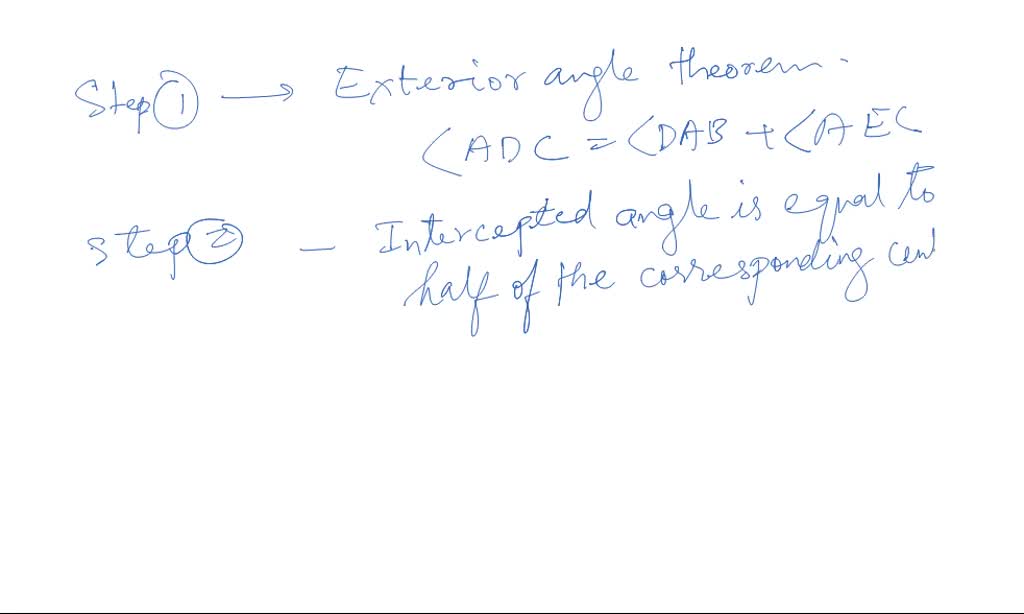 Step ① → Exterior angle theorem.
<ADC = <DAB + <AEC
step ② — Intercepted angle is equal to
half of the corresponding cent